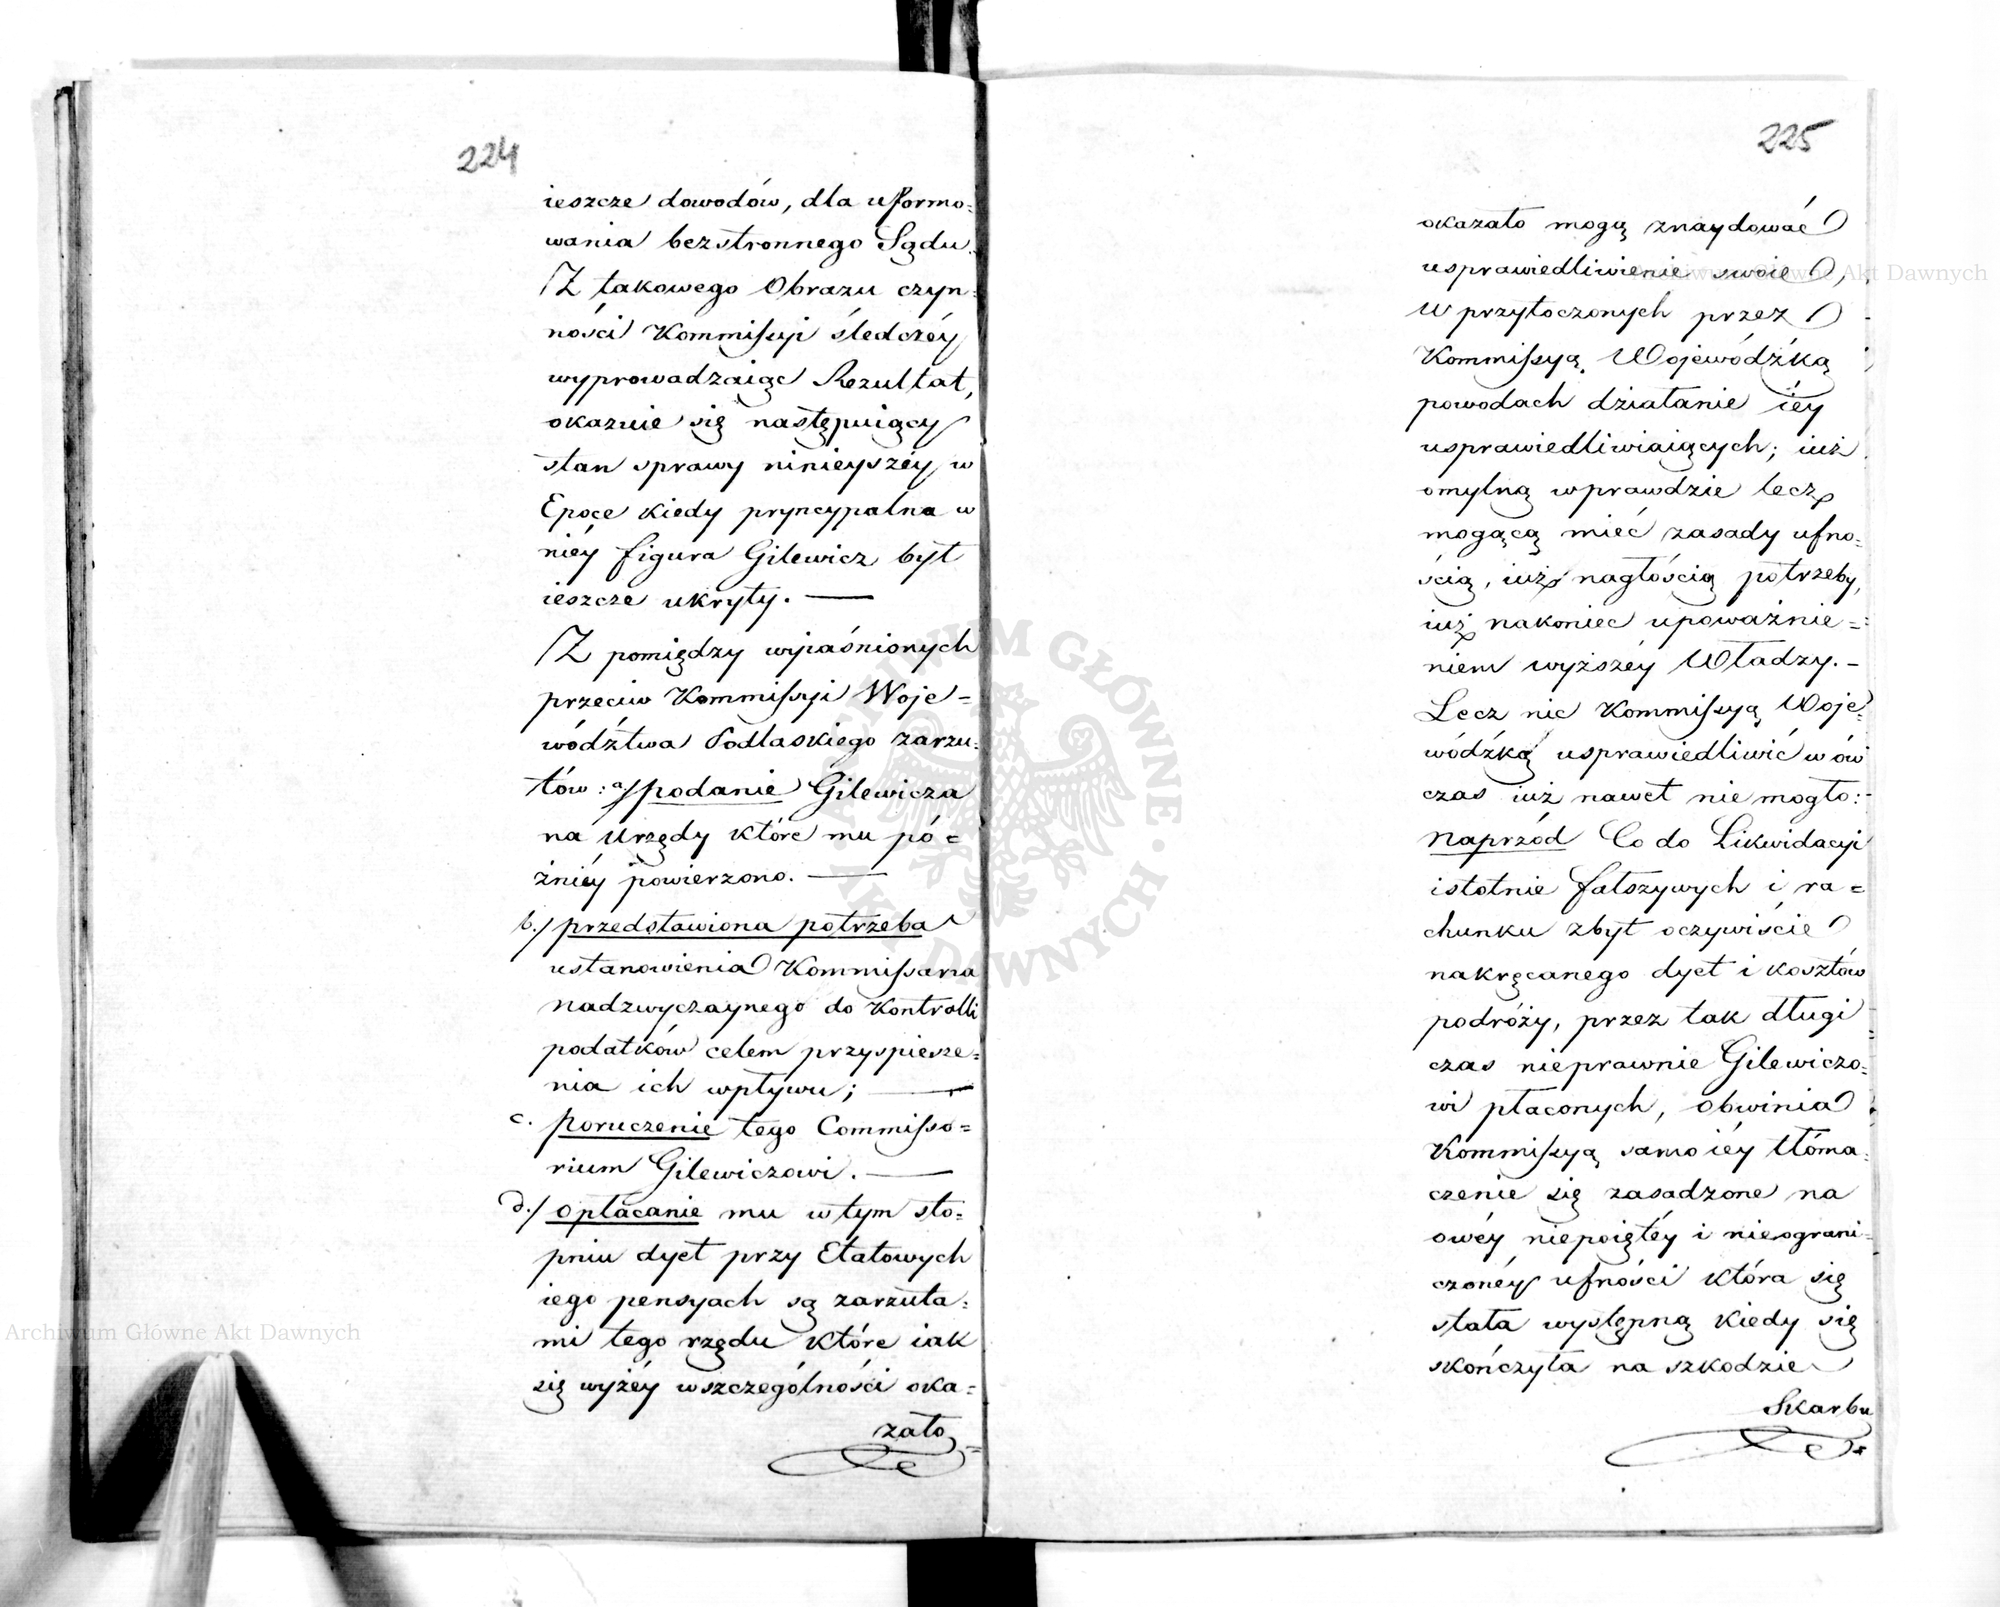 224
ieszcze dowodów, dla uformo=
wania bezstronnego Sądu.
Z takowego Obrazu czyn=
ności Kommissyi śledczéy
wyprowadzaiąc Rezultat,
okazuie się następuiący
stan sprawy ninieyszéy w
Epoce kiedy pryncypalna w
niéy figura Gilewicz był
ieszcze ukryty. —
Z pomiędzy wyiaśnionych
przeciw Kommissyi Woje=
wództwa Podlaskiego zarzu=
tów: a/ podanie Gilewicza
na Urzędy które mu pó=
źniéy powierzono. —
b./ przedstawiona potrzeba
ustanowienia Kommissarza
Nadzwyczaynego do Kontrolli
podatków celem przyspiesze=
nia ich wpływu; —
c. poruczenie tego Commisso=
rium Gilewiczowi. —
d./ opłacanie mu w tym sto=
pniu dyet przy Etatowych
iego pensyach są zarzuta=
mi tego rzędu które iak
się wyżéy wszczególności oka=
zało
225
okazało mogą znaydować
usprawiedliwienie swoie,
w przytoczonych przez
Kommissyą Wojewódzką
powodach działanie iéy
usprawiedliwiaiących; iuż
omylną wprawdzie lecz
mogącą mieć zasady ufno=
ścią, iuż nagłością potrzeby,
iuż nakoniec upoważnie=
niem wyższéy Władzy. —
Lecz nic Kommissyą Woje=
wódzką usprawiedliwić wów
czas iuż nawet nie mogło:
Naprzód Co do Likwidacyi
istotnie fałszywych i ra=
chunku zbyt oczywiście
nakręcanego dyet i kosztów
podróży, przez tak długi
czas nieprawnie Gilewiczo=
wi płaconych, obwinia
Kommissyą samo iéy tłóma=
czenie się zasadzone na
owéy niepoiętéy i nieograni=
czonéy ufności która się
stała występną kiedy się
skończyła na szkodzie
Skarbu
Archiwum Główne Akt Dawnych
ARCHIWUM GŁÓWNE · AKT DAWNYCH ·
Archiwum Główne Akt Dawnych